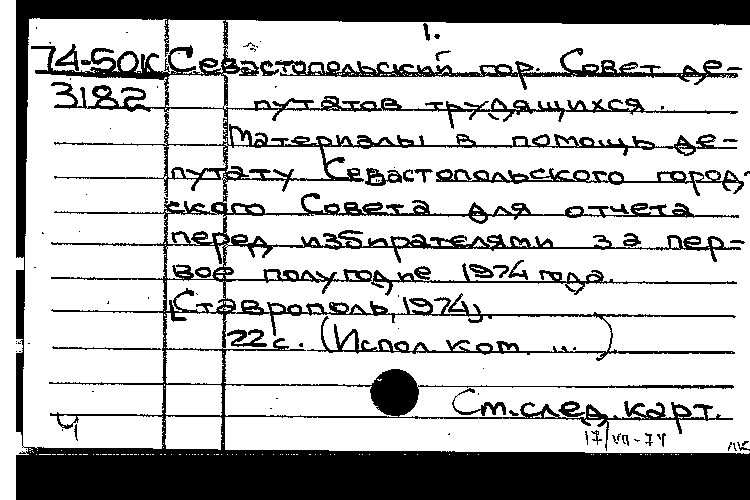 1.
74-50К Севастопольский гор. Совет де-
3182 путатов трудящихся.
Материалы в помощь де-
путату Севастопольского город-
ского Совета для отчета
перед избирателями за пер-
вое полугодие 1974 года.
[Ставрополь, 1974].
22 с. (Испол. ком. ...)
См. след. карт.
Ч
17/VII-74